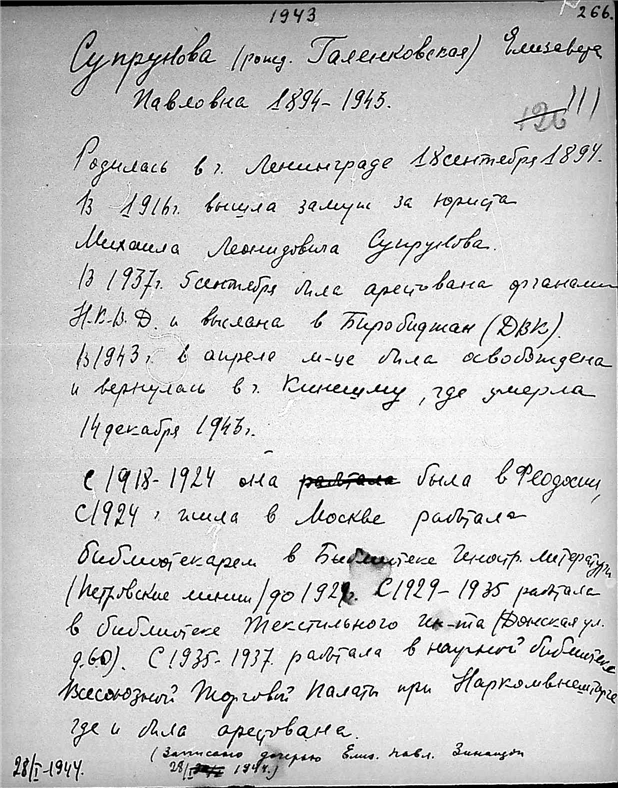 1943
266.
Супрунова (рожд. Галенковская) Елизавета
Павловна 1894-1943.
126 111
Родилась в г. Ленинграде 18 сентября 1894.
В 1916г. вышла замуж за юриста
Михаила Леонидовича Супрунова.
В 1937г. 5 сентября была арестована органами
Н.К.В.Д. и выслана в Биробиджан (ДВК).
В 1943 г. в апреле м-це была освобождена
и вернулась в г. Кинешму, где умерла
14 декабря 1943г.
С 1918-1924 она работала была в Феодосии,
С 1924 г. жила в Москве работала
библиотекарем в Библиотеке Иностр. литературы
(Петровские линии) до 1929г. С 1929-1935 работала
в библиотеке Текстильного Ин-та (Донская ул.
д.60). С 1935-1937 работала в научной библиотеке
Всесоюзной Торговой Палаты при Наркомвнешторге
где и была арестована.
(Записано дочерью Елиз. Павл. Зинаидой
28/I 1944.)
28/I-1944.